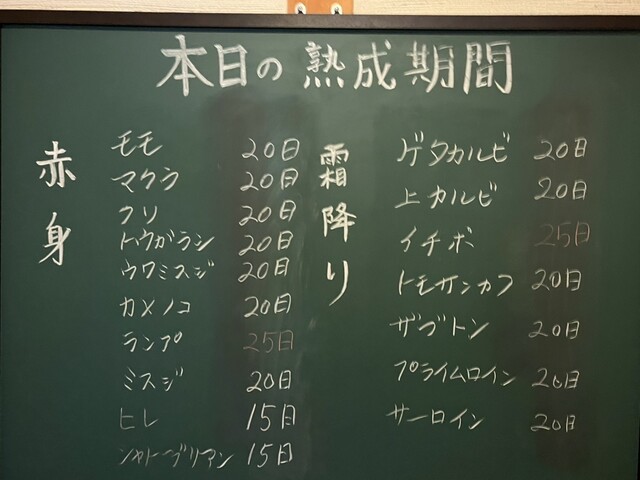 本日の熟成期間
赤身
モモ 20日
マクラ 20日
クリ 20日
トウガラシ 20日
ウワミスジ 20日
カメノコ 20日
ランプ 25日
ミスジ 20日
ヒレ 15日
シャトーブリアン 15日
霜降り
ゲタカルビ 20日
上カルビ 20日
イチボ 25日
トモサンカク 20日
ザブトン 20日
プライムロイン 20日
サーロイン 20日